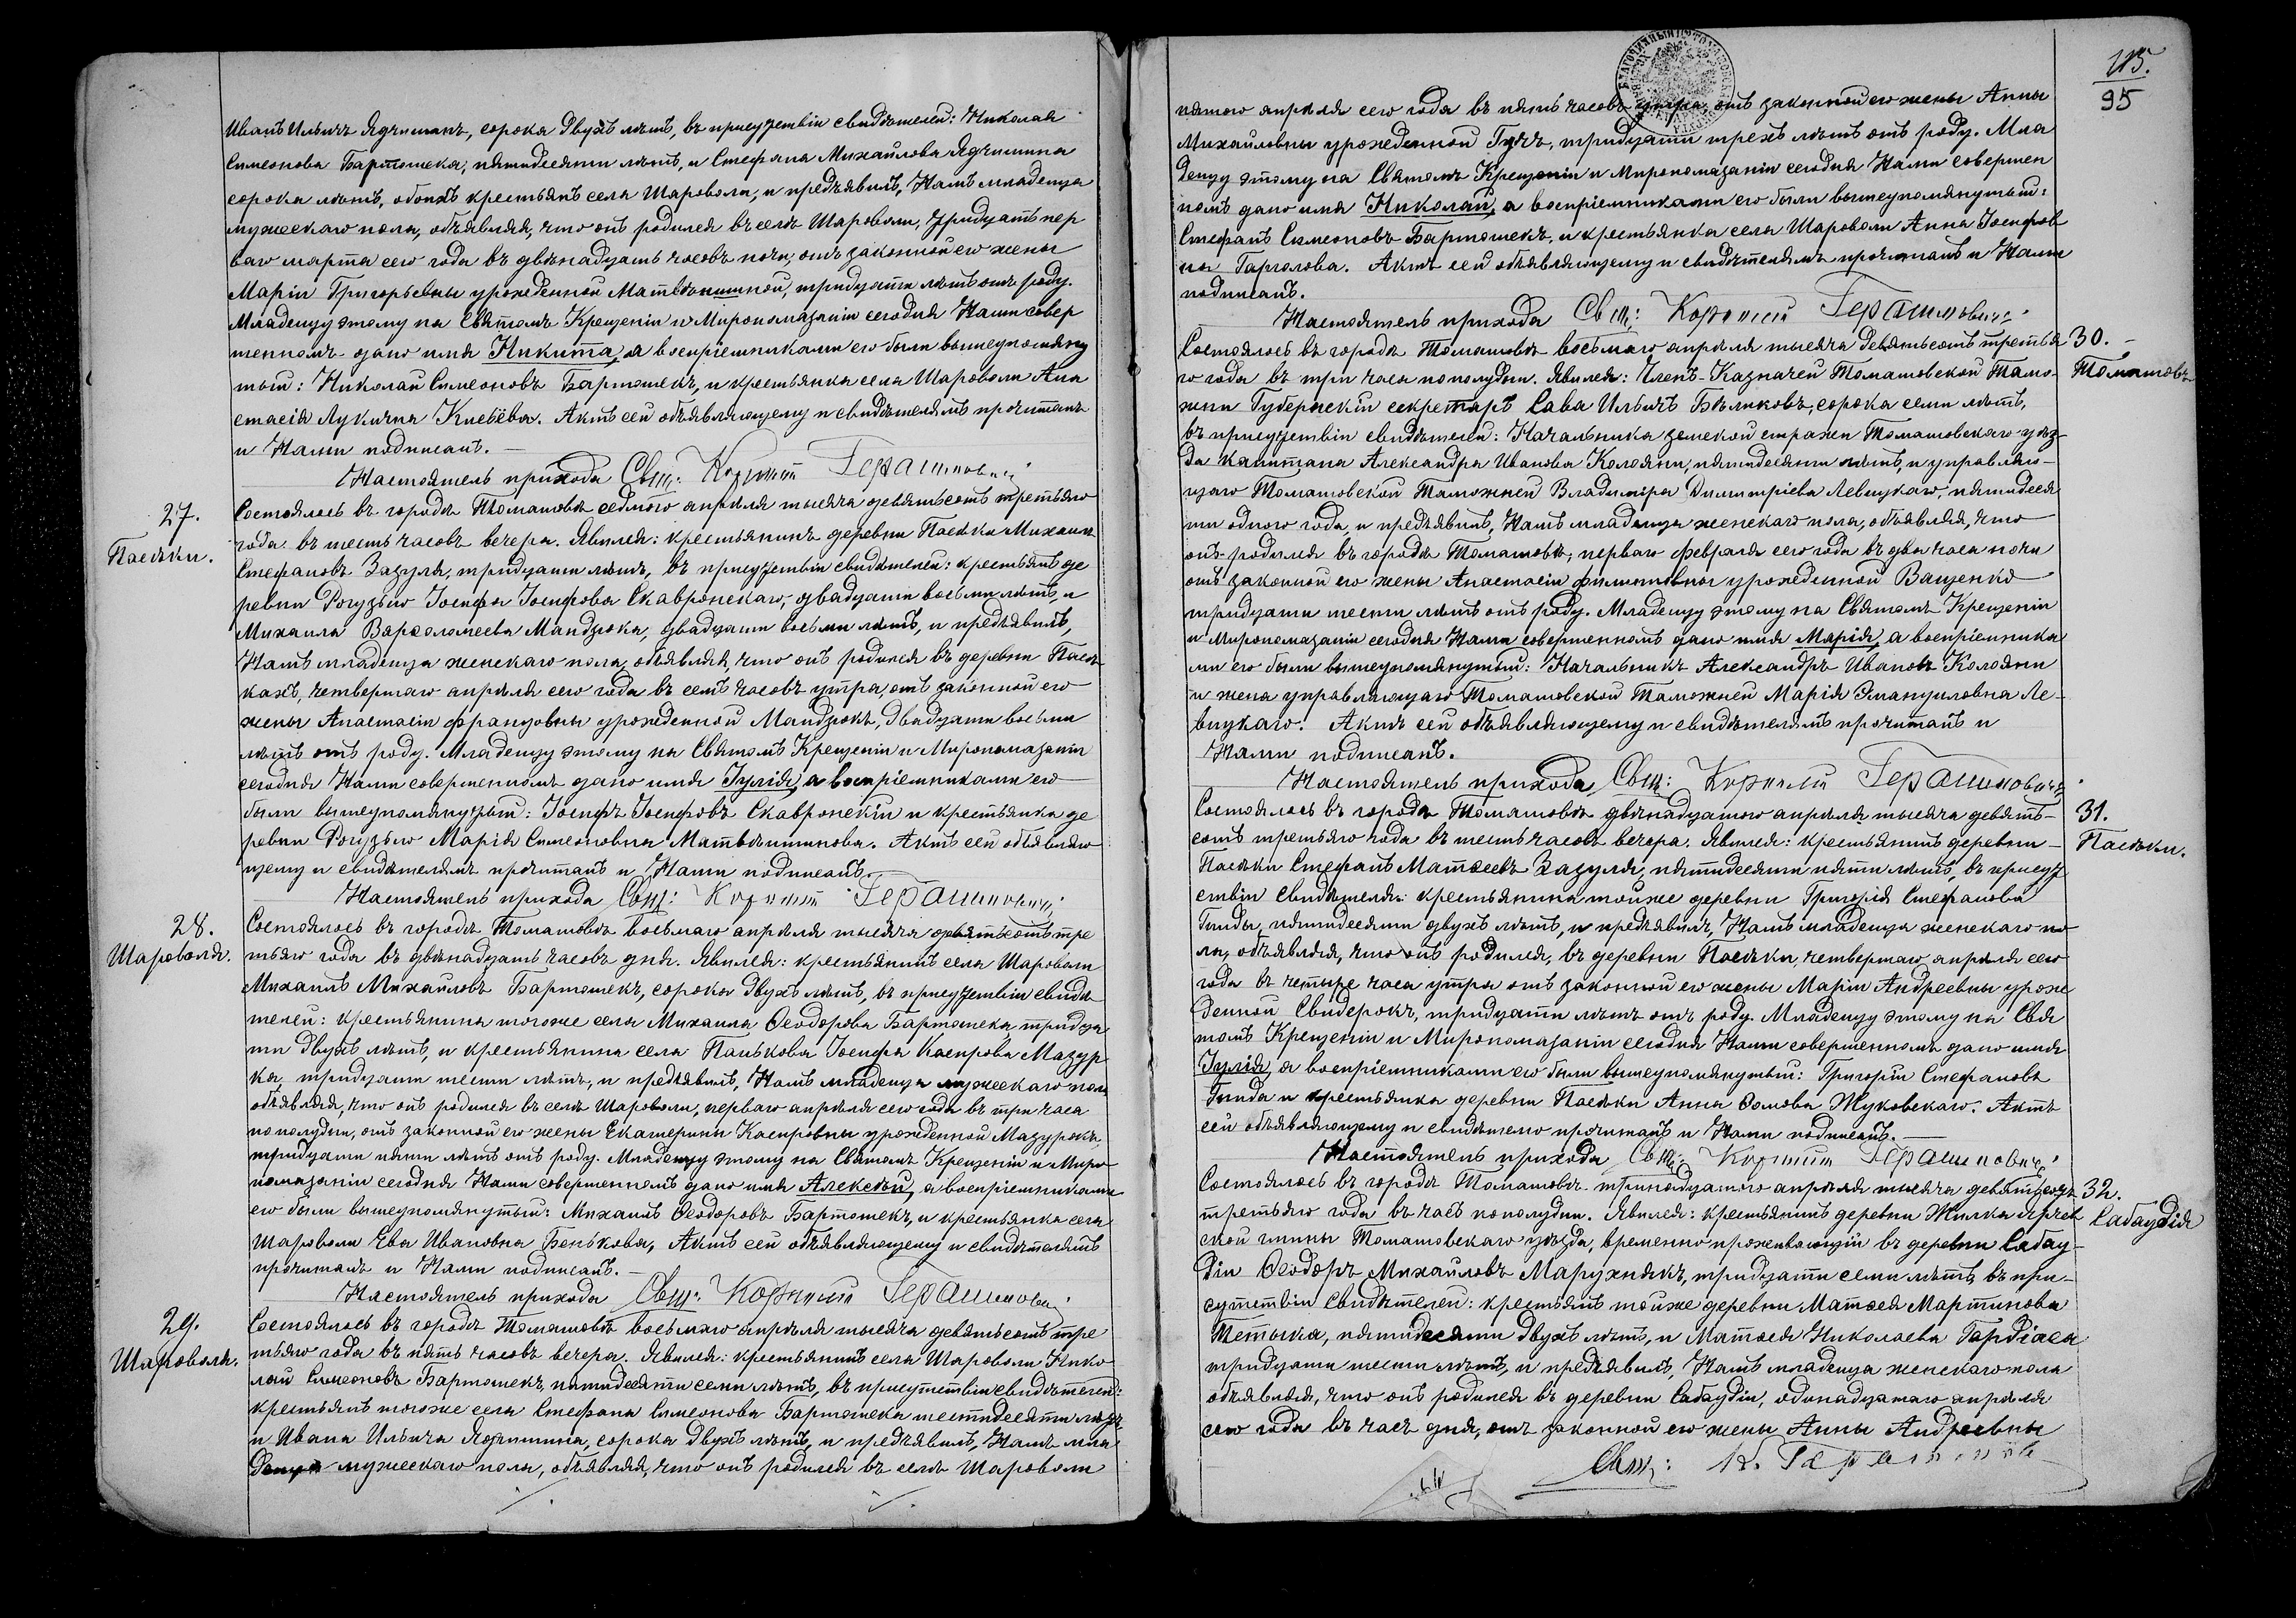 Иванъ Ильичъ Ядчишинъ, сорока двухъ лѣтъ, въ присутствіи свидѣтелей: Николая
Симеонова Бартошека, пятидесяти лѣтъ, и Стефана Михайлова Ядчишина
сорока лѣтъ, обоихъ крестьянъ села Шароволи, и предъявилъ, Намъ младенца
мужескаго пола, объявляя, что онъ родился въ селѣ Шароволи, тридцать пер
ваго марта сего года въ двѣнадцать часовъ ночи, отъ законной его жены
Маріи Григорьевны урожденной Матвѣишиной, тридцати лѣтъ отъ роду.
Младенцу этому на Святомъ Крещеніи и Миропомазаніи сегодня Нами совер
шенномъ дано имя Никита, а воспріемниками его были вышеупомяну
тый: Николай Симеоновъ Бартошекъ, и крестьянка села Шароволи Ана
стасія Лукична Киебёва. Актъ сей объявляющему и свидѣтелямъ прочитанъ
и Нами подписанъ.
Настоятель прихода Свщ: Корнилій Герасимовичъ
27.
Пасѣки.
Состоялось въ городѣ Томашовѣ седмого апрѣля тысяча девятьсотъ третьяго
года въ шесть часовъ вечера. Явился: крестьянинъ деревни Пасѣки Михаилъ
Стефановъ Зазуля, тридцати лѣтъ, въ присутствіи свидѣтелей: крестьянъ де
ревни Рогузьно Іосифа Іосифова Скавронскаго, двадцати восьми лѣтъ, и
Михаила Варфоломеева Мандзюка, двадцати восьми лѣтъ, и предъявилъ,
Намъ младенца женскаго пола, объявляя что онъ родился въ деревни Пасѣ
кахъ, четвертаго апрѣля сего года въ семь часовъ утра, отъ законной его
жены Анастасіи Францовны урожденной Мандзюкъ, двадцати восьми
лѣтъ отъ роду. Младенцу этому на Святомъ Крещеніи и Миропомазаніи
сегодня Нами совершенномъ дано имя Іулія, а воспріемниками его
были вышеупомянутый: Іосифъ Іосифовъ Скавронскій и крестьянка де
ревни Рогузьно Марія Симеоновна Матвѣишинова. Актъ сей объявляю
щему и свидѣтелямъ прочитанъ и Нами подписанъ.
Настоятель прихода Свщ: Корнилій Герасимовичъ
28.
Шароволя.
Состоялось въ городѣ Томашовѣ восьмаго апрѣля тысяча девятьсотъ тре
тьяго года въ двѣнадцать часовъ дня. Явился: крестьянинъ села Шароволи
Михаилъ Михайловъ Бартошекъ, сорока двухъ лѣтъ, въ присутствіи свидѣ
телей: крестьянина тогоже села Михаила Ѳеодорова Бартошека тридца
ти двухъ лѣтъ, и крестьянина села Панькова Іосифа Каспрова Мазур
ка, тридцати шести лѣтъ, и предъявилъ, Намъ младенца мужескаго пола
объявляя, что онъ родился въ селѣ Шароволи, перваго апрѣля сего года въ три часа
пополудни, отъ законной его жены Екатерины Каспровны урожденной Мазурокъ,
тридцати пяти лѣтъ отъ роду. Младенцу этому на Святомъ Крещеніи и Миро
помазаніи сегодня Нами совершенномъ дано имя Алексѣй, а воспріемниками
его были вышеупомянутый: Михаилъ Ѳеодоровъ Бартошекъ, и крестьянка села
Шароволи Ева Ивановна Бенькова, Актъ сей объявляющему и свидѣтелямъ
прочитанъ и Нами подписанъ.
Настоятель прихода Свщ: Корнилій Герасимовичъ
29.
Шароволя.
Состоялось въ городѣ Томашовѣ восьмаго апрѣля тысяча девятьсотъ тре
тьяго года въ пять часовъ вечера. Явился: крестьянинъ села Шароволи Нико
лай Симеоновъ Бартошекъ, пятидесяти семи лѣтъ, въ присутствіи свидѣтелей:
крестьянъ тогоже села Стефана Симеонова Бартошека шестидесяти лѣтъ
и Ивана Ильича Ядчишина, сорока двухъ лѣтъ, и предъявилъ, Намъ мла
денца мужескаго пола, объявляя, что онъ родился въ селѣ Шароволи
115.
95
пятого апрѣля сего года въ пять часовъ утра, отъ законной его жены Анны
Михайловны урожденной Гучъ, тридцати трехъ лѣтъ отъ роду. Мла
денцу этому на Святомъ Крещеніи и Миропомазаніи сегодня Нами совершен
номъ дано имя Николай, а воспріемниками его были вышеупомянутый:
Стефанъ Симеоновъ Бартошекъ, и крестьянка села Шароволи Анна Іосифов
на Гарголова. Актъ сей объявляющему и свидѣтелямъ прочитанъ и Нами
подписанъ.
Настоятель прихода Свщ: Корнилій Герасимовичъ
30.
Томашовъ
Состоялось въ городѣ Томашовѣ восьмаго апрѣля тысяча девятьсотъ третья
го года въ три часа пополудни. Явился: Членъ-Казначей Томашовской Тамо-
жни Губернскій секретарь Сава Ильичъ Бѣликовъ, сорока семи лѣтъ,
въ присутствіи свидѣтелей: Начальника земской стражи Томашовскаго уѣз-
да капитана Александра Иванова Колояни, пятидесяти лѣтъ, и управляю-
щаго Томашовской Таможней Владиміра Димитріева Левицкаго, пятидеся
ти одного года, и предъявилъ, Намъ младенца женскаго пола, объявляя, что
онъ родился въ городѣ Томашовѣ, перваго февраля сего года въ два часа ночи
отъ законной его жены Анастасіи Филипповны урожденной Ващенко
тридцати шести лѣтъ отъ роду. Младенцу этому на Святомъ Крещеніи
и Миропомазаніи сегодня Нами совершенномъ дано имя Марія, а воспріемника
ми его были вышеупомянутый: Начальникъ Александръ Ивановъ Колояни
и жена управляющаго Томашовской Таможней Марія Эмануиловна Ле-
вицкаго. Актъ сей объявляющему и свидѣтелямъ прочитанъ и
Нами подписанъ.
Настоятель прихода Свщ: Корнилій Герасимовичъ
31.
Пасѣки.
Состоялось въ городѣ Томашовѣ двѣнадцатого апрѣля тысяча девять-
сотъ третьяго года въ шесть часовъ вечера. Явился: крестьянинъ деревни
Пасѣки Стефанъ Матѳеевъ Зазуля, пятидесяти пяти лѣтъ, въ присут
ствіи свидѣтеля: крестьянина тойже деревни Григорія Стефанова
Гинды, пятидесяти двухъ лѣтъ, и предъявилъ, Намъ младенца женскаго по-
ла, объявляя, что онъ родился, въ деревни Пасѣки, четвертаго апрѣля сего
года въ четыре часа утра отъ законной его жены Маріи Андреевны урож
денной Свидерокъ, тридцати лѣтъ отъ роду. Младенцу этому на Свя
томъ Крещеніи и Миропомазаніи сегодня Нами совершенномъ дано имя
Іулія, а воспріемниками его были вышеупомянутый: Григорій Стефановъ
Гинда и крестьянка деревни Пасѣки Анна Ѳомова Жуковскаго. Актъ
сей объявляющему и свидѣтелю прочитанъ и Нами подписанъ.
Настоятель прихода Свщ: Корнилій Герасимовичъ
32.
Сабаудія
Состоялось въ городѣ Томашовѣ тринадцатого апрѣля тысяча девятьсотъ
третьяго года въ часъ пополудни. Явился: крестьянинъ деревни Жилка Ярчев
ской гмины Томашовскаго уѣзда, временно проживающій въ деревни Сабау-
діи Ѳеодоръ Михайловъ Марухнякъ, тридцати семи лѣтъ, въ при-
сутствіи свидѣтелей: крестьянъ тойже деревни Матѳея Мартинова
Тетыка, пятидесяти двухъ лѣтъ, и Матѳея Николаева Гардіаса
тридцати шести лѣтъ, и предъявилъ, Намъ младенца женскаго пола
объявляя, что онъ родился въ деревни Сабаудіи, одинадцатаго апрѣля
сего года въ часъ дня, отъ законной его жены Анны Андреевны
Свщ: К. Герасимовичъ